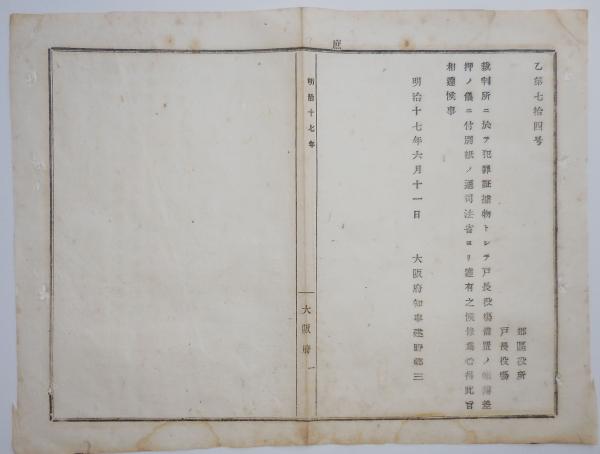 乙第七拾四号
郡区役所
戸長役場
裁判所ニ於テ犯罪証拠物トシテ戸長役場備置ノ帳簿差
押ノ儀ニ付別紙ノ通司法省ヨリ達有之候条為心得此旨
相達候事
明治十七年六月十一日
大阪府知事建野郷三
庶
明治十七年
大阪府
一